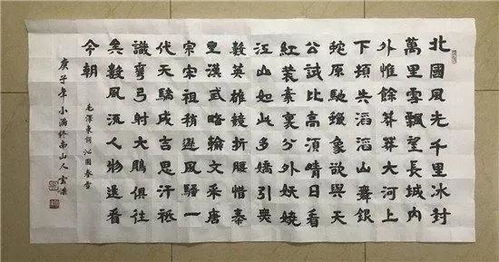 北國風光千里冰封
萬里雪飄望長城内
外惟餘莽莽大河上
下頓失滔滔山舞銀
蛇原馳蠟象欲與天
公試比高須晴日看
紅裝素裹分外妖嬈
江山如此多嬌引無
數英雄競折腰惜秦
皇漢武略輸文采唐
宗宋祖稍遜風騷一
代天驕成吉思汗祇
識彎弓射大鵰俱往
矣數風流人物還看
今朝
毛澤東詞沁園春雪
庚子年小滿終南山人雲